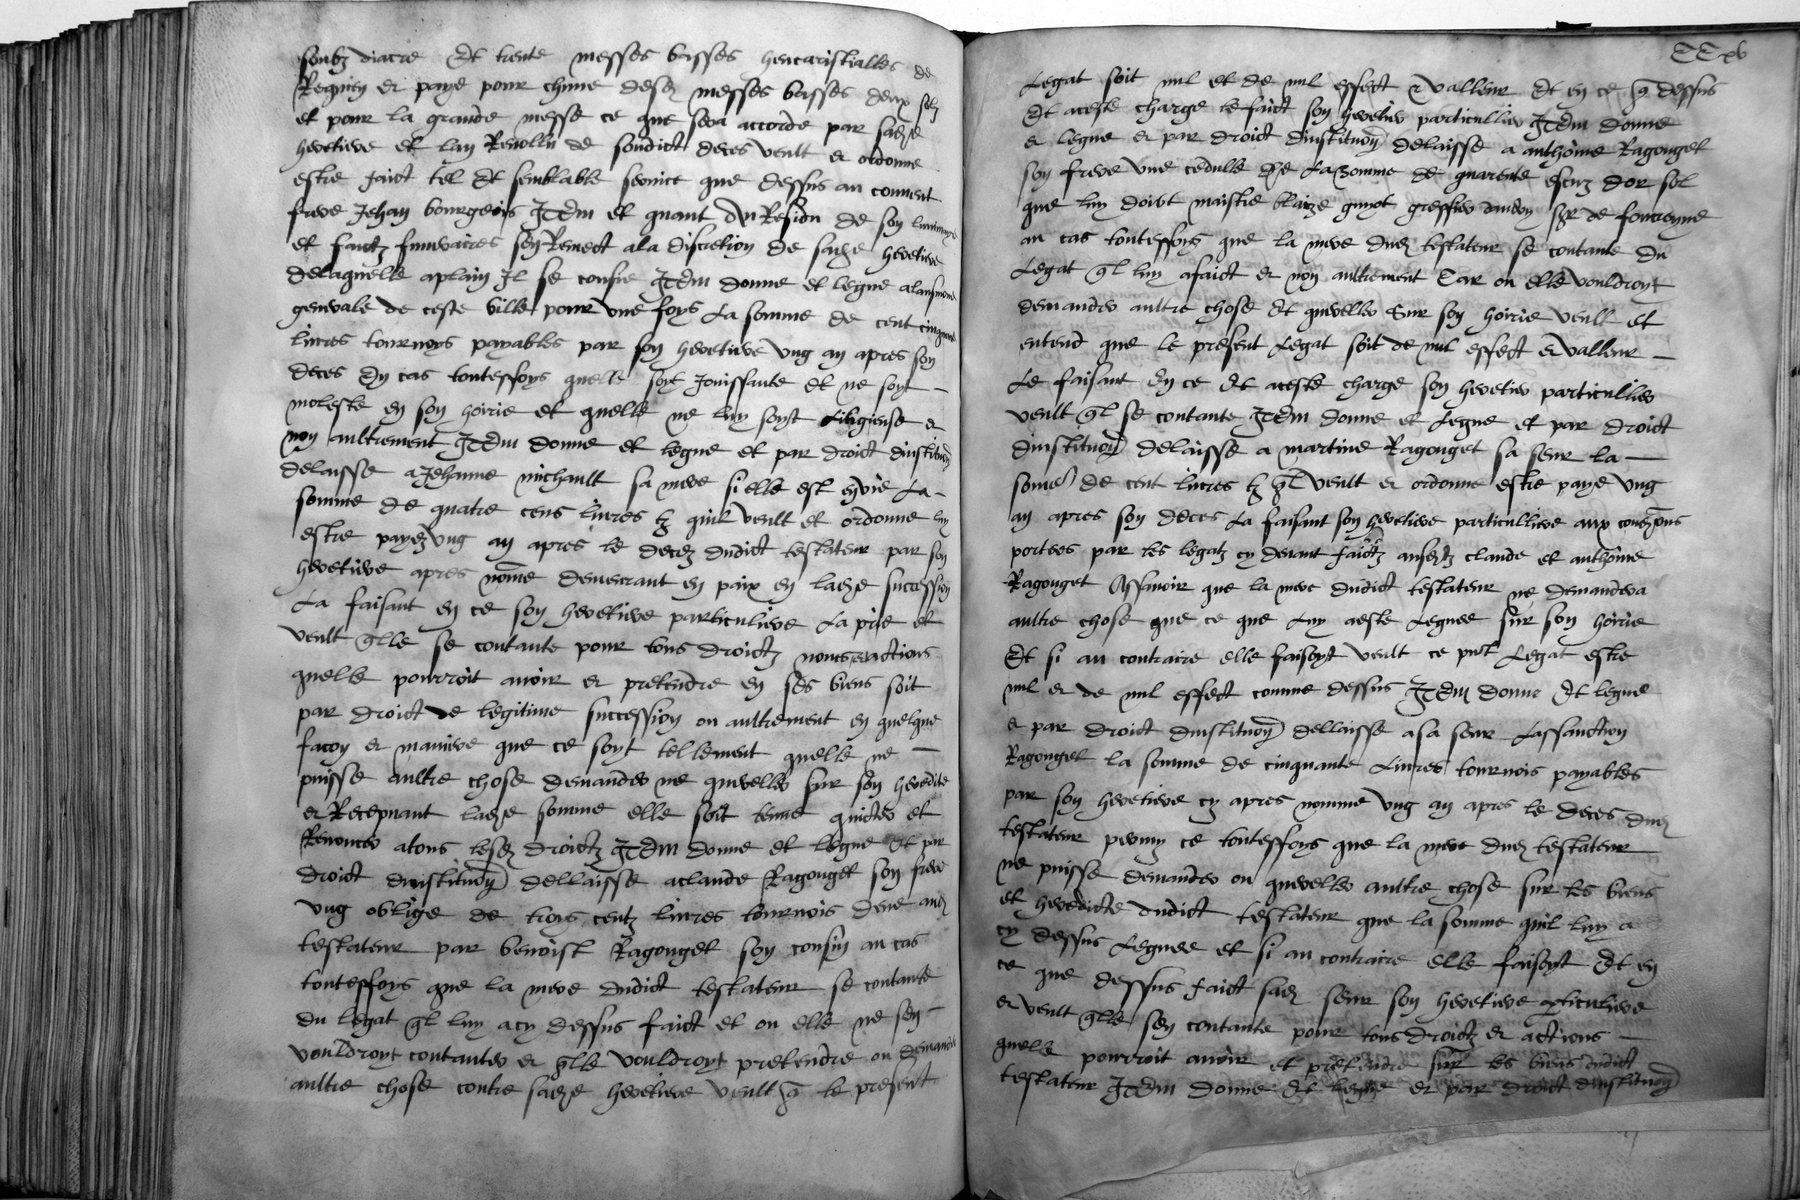 soubz diacre Et trente messes basses
et paye pour chune desd messes basses deux solz
et pour la grande messe ce que sera accorde par sade
heretiere et lan Revollu de sondict deces veult et ordonne
estre faict tel Et semblable service que dessus au convent
frere Jehan bourgeois Item et quant de son luminaire
et faictz funeraires sen Remect a la discretion de sade heretiere
de laquelle aplain Il se confie Item donne et legue a laulmone
generale de ceste ville pour une foys La somme de cent cinquante
livres tournoys payables par son heretiere ung an apres son
deces En cas toutesfoys quelle soyt Jouissante et ne soyt
moleste en son hoirie et quelle ne luy soyt Litigieuse et
non aultrement Item donne et legue et par droict dinstitucion
delaisse a Jehanne michault sa mere si elle est en vie La
somme de quatre cens livres tz quil veult et ordonne luy
estre payez ung an apres le decez dudict testateur par son
heretiere apres nomme demeurant en paix en lade succession
La faisant en ce son heretiere particuliere La prie et
veult qlle se contante pour tous droictz noms et actions
quelle pourroit avoir et pretendre en ses biens soit
par droict de legitime succession ou aultrement en quelque
facon et maniere que ce soyt tellement quelle ne
puisse aultre chose demander ne quereller sur son heredite
et Recepvant lade somme elle soit tenue quicter et
Renoncer a tous lesd droictz Item donne et legue Et par
droict dinstitucion dellaisse a claude Ragouget son frere
ung oblige de troys centz livres tournois deue aud
testateur par benoist Ragouget son cousin au cas
toutesfoys que la mere dudict testateur se contante
du legat ql luy a cy dessus faict et ou elle ne sen
vouldroyt contanter et qlle vouldroyt pretendre ou demander
aultre chose contre sade heretiere veult q le present
CCxv
Legat soit nul et de nul effect et valleur Et en ce q dessus
Et a ceste charge le faict son heretier particullier Item donne
et legue et par droict dinstitucion delaisse a anthoine Ragouget
son frere une cedulle de La somme de quarente escuz dor sol
que luy doibt maistre blaize guyot greffier
au cas toutesfoys que la mere dud testateur se contante du
Legat ql luy a faict et non aultrement Car ou elle vouldroyt
demander aultre chose Et quereller Sur son hoirie veult et
entend que le present Legat soit de nul effect et valleur
Le faisant En ce Et a ceste charge son heretier particullier
veult ql se contante Item donne et Legue et par droict
dinstitucion delaisse a martine Ragouget sa seur la
some de cent livres tz ql veult et ordonne estre paye ung
an apres son deces La faisant son heretiere particulliere aux condicions
portees par les legatz cy devant faictz ausdictz claude et anthoine
Ragouget Assavoir que la mere dudict testateur ne demandera
aultre chose que ce que Luy a este Leguee sur son hoirie
Et si au contraire elle faisoyt veult ce pnt Legat estre
nul et de nul effect comme dessus Item donne Et legue
et par droict dinstitucion dellaisse a sa seur
Ragouget la somme de cinquante Livres tournois payables
par son heretiere cy apres nomme ung an apres le deces dud
testateur ce toutesfoys que la mere dud testateur
ne puisse demander ou quereller aultre chose sur les biens
et heredicte dudict testateur que la somme quil luy a
cy dessus Leguee et si au contraire elle faisoyt Et en
ce que dessus faict sad seur son heretiere particuliere
et veult qlle sen contante pour tous droictz et actions
quelle pourroit avoir et pretendre sur les biens dudict
testateur Item donne Et legue et par droict dinstitucion